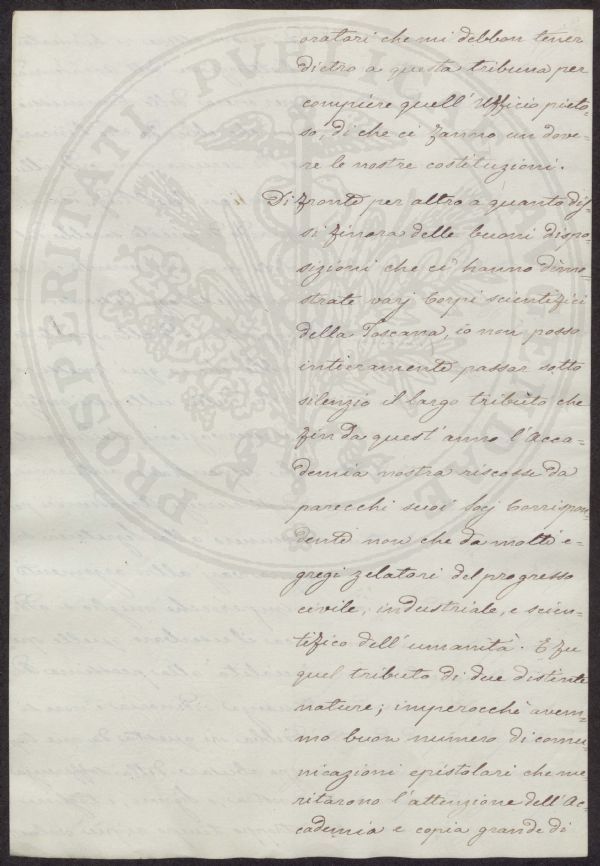 oratori che mi debbon tener
dietro a questa tribuna per
compiere quell'Ufficio pieto-
so, di che ci fanno un dove-
re le nostre costituzioni.
Di fronte per altro a quanto dis-
si finora delle buoni dispo-
sizioni che ci hanno dimo-
strate varj Corpi scientifici
della Toscana, io non posso
intieramente passar sotto
silenzio il largo tributo che
fin da quest'anno l'Acca-
demia nostra riscosse da
parecchi suoi Socj Corrispon-
denti non che da molti e-
gregi zelatori del progresso
civile, industriale, e scien-
tifico dell'umanità. E fu
quel tributo di due distinte
nature; imperocchè avem-
mo buon numero di comu-
nicazioni epistolari che me-
ritarono l'attenzione dell'Ac-
cademia e copia grande di
PROSPERITATI PUBLICAE AUGENDAE